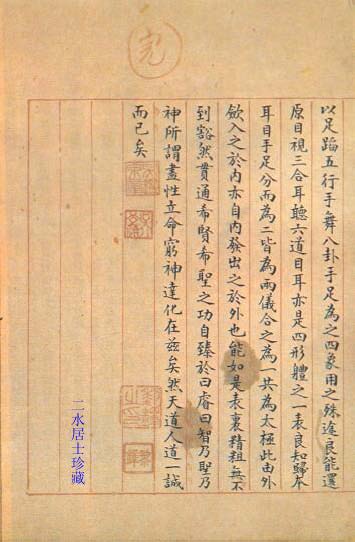 完
以足蹈五行手舞八卦手足為之四象用之殊途良能還
原目視三合耳聽六道目耳亦是四形體之一表良知歸本
耳目手足分而為二皆為兩儀合之為一共為太極此由外
歛入之於內亦自內發出之於外也能如是表裏精粗無不
到豁然貫通希賢希聖之功自臻於曰睿曰智乃聖乃
神所謂盡性立命窮神達化在茲矣然天道人道一誠
而已矣
二水居士珍藏